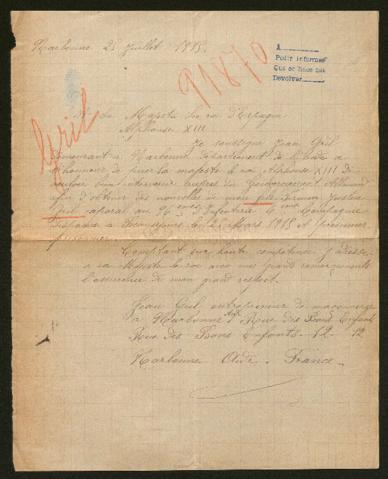 Narbonne 2 Juillet 1915.
91870
A
Pour informer
Que ce
Devolver
Gril
Majesté le roi d'Espagne
Alphonse XIII
Je soussigné Jean Gril
demeurant à Narbonne département de l'Aude a
l'honneur de prier sa majesté le roi Alphonse XIII de
vouloir bien intervenir auprès du gouvernement Allemand
afin d'obtenir des nouvelles de mon fils
Gril caporal au d'Infanterie Compagnie
disparu à le Mars 1915 et prisonnier
Comptant sur haute j'adresse
a sa Majesté le roi avec mes grands remerciements
l'assurance de mon grand respect.
Jean Gril entrepreneur de maçonnerie
à Narbonne Rue des Bons Enfants
Rue des Bons Enfants 12 12
Narbonne Aude. France.